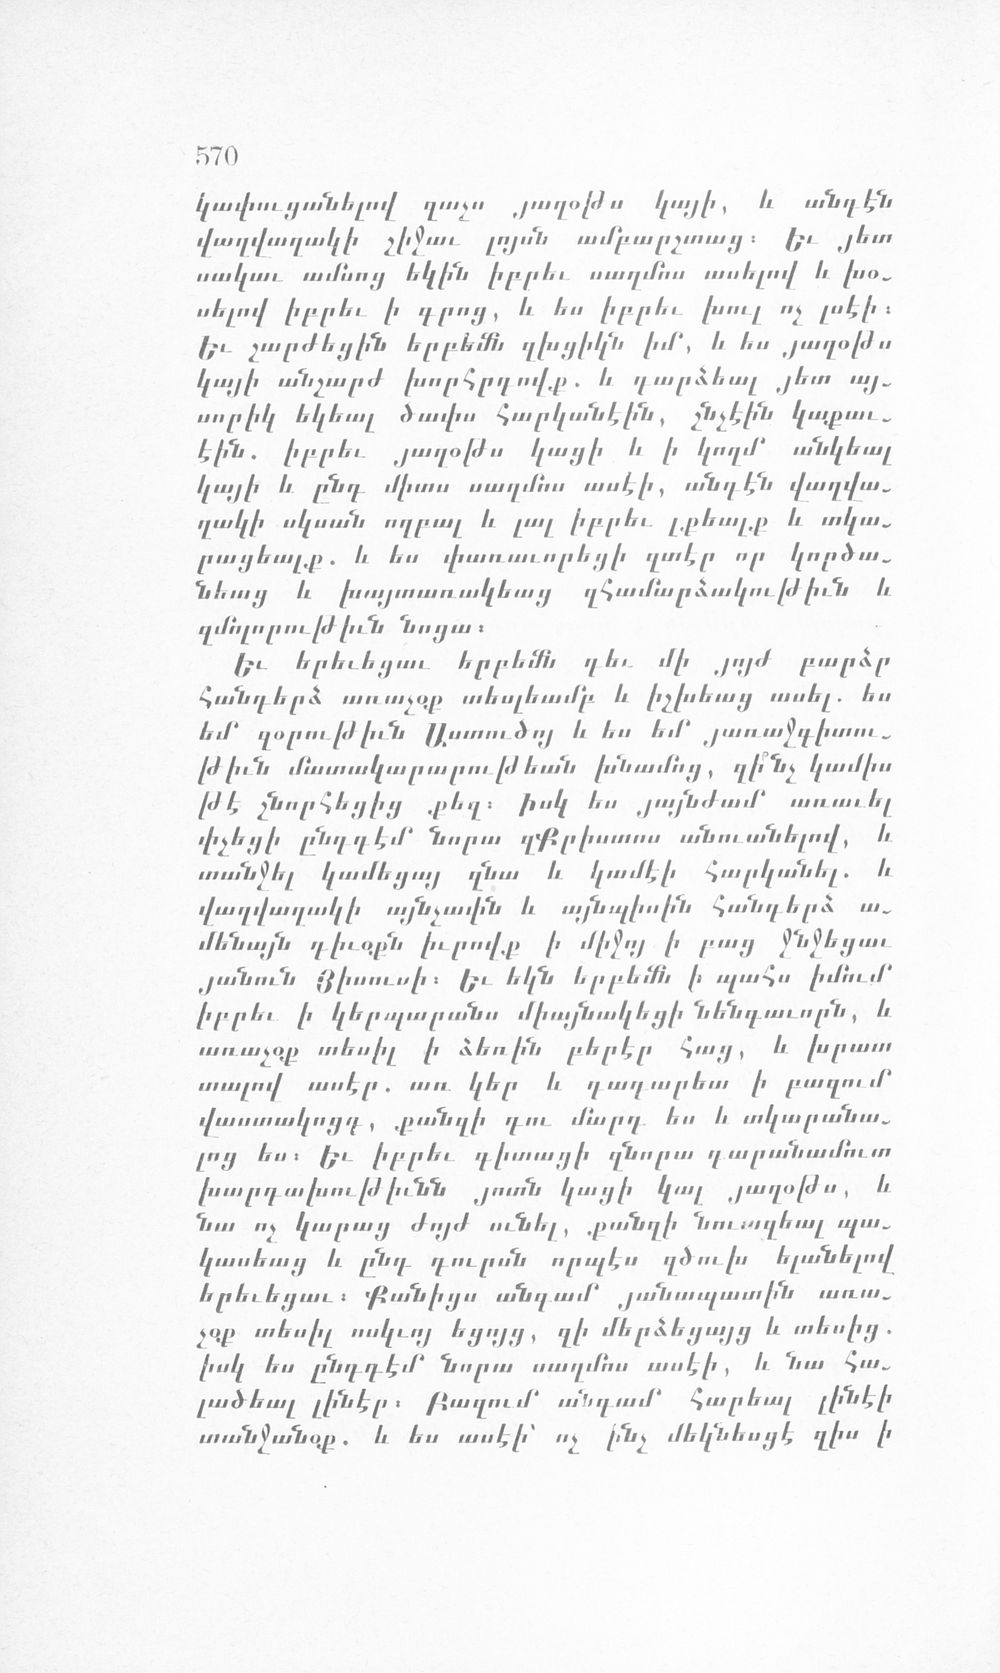 570
կափուցանելով զաչս յաղօթս կայի, և անդէն
վաղվաղակի շիջաւ լոյսն ամբարշտաց։ Եւ յետ
սակաւ ամսոց եկին իբրեւ սաղմոս ասելով և խօ֊
սելով իբրեւ ի գրոց, և ես իբրեւ խուլ ոչ լսէի։
Եւ շարժեցին երբեմն զխցիկն իմ, և ես յաղօթս
կայի անշարժ խորհրդովք. և դարձեալ յետ այ֊
սորիկ եկեալ ծափս հարկանէին, շնչէին կաքաւ֊
էին. իբրեւ յաղօթս կացի և ի կողմ անկեալ
կայի և ընդ միտս սաղմոս ասէի, անդէն վաղվա֊
ղակի սկսան ողբալ և լալ իբրեւ լքեալք և տկա֊
րացեալք. և ես փառաւորեցի զտէր որ կործա֊
նեաց և խայտառակեաց զհամարձակութիւն և
զմոլորութիւն նոցա։
Եւ երեւեցաւ երբեմն դեւ մի յոյժ բարձր
հանդերձ առաչօք տեսլեամբ և իշխեաց ասել. ես
եմ զօրութիւն Աստուծոյ և ես եմ յառաջգիտու֊
թիւն մատակարարութեան խնամոց, զի՞նչ կամիս
թէ շնորհեցից քեզ։ Իսկ ես յայնժամ առաւել
փչեցի ընդդէմ նորա զՔրիստոս անուանելով, և
տանջել կամեցայ զնա և կամէի հարկանել. և
վաղվաղակի այնչափն և այնպիսին հանդերձ ա֊
մենայն դիւօքն իւրովք ի միջոյ ի բաց ջնջեցաւ
յանուն Յիսուսի։ Եւ եկն երբեմն ի պահս իմում
իբրեւ ի կերպարանս միայնակեցի նենգաւորն, և
առաչօք տեսիլ ի ձեռին բերէր հաց, և խրատ
տալով ասէր. առ կեր և դադարեա ի բազում
վաստակոցդ, քանզի դու մարդ ես և տկարանա֊
լոց ես։ Եւ իբրեւ գիտացի զնորա դարանամուտ
խարդախութիւնն յոտն կացի կալ յաղօթս, և
նա ոչ կարաց ժոյժ ունել, քանզի նուազեալ պա֊
կասեաց և ընդ դուրսն որպէս զծուխ ելանելով
երեւեցաւ։ Քանիցս անգամ յանապատին առա֊
չօք տեսիլ ոսկւոյ եցոյց, զի մերձեցայց և տեսից.
իսկ ես ընդդէմ նորա սաղմոս ասէի, և նա հա֊
լածեալ լինէր։ Բազում անգամ հարեալ լինէի
տանջանօք. և ես ասէի՝ ոչ ինչ մեկնեսցէ զիս ի